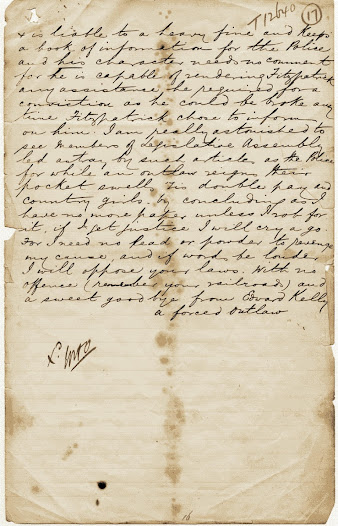 T12640 (17)
& is liable to a heavy fine and keeps
a book of information for the Police
and his character needs no comment
for he is capable of rendering Fitzpatrick
any assistance he required for a
conviction as he could be broke any
time Fitzpatrick chose to inform
on him. I am really astonished to
see Members of Legislative Assembly
led astray by such articles as the Police
for while an outlaw reigns their
pocket swells Tis double pay and
country girls by concluding as I
have no more paper unless I rob for
it, if I get justice I will cry a go.
For I need no lead or powder to revenge
my cause, and if word be louder
I will oppose your laws. With no
offence (remember your railroads) and
a sweet good bye from Edward Kelly
a forced Outlaw
16